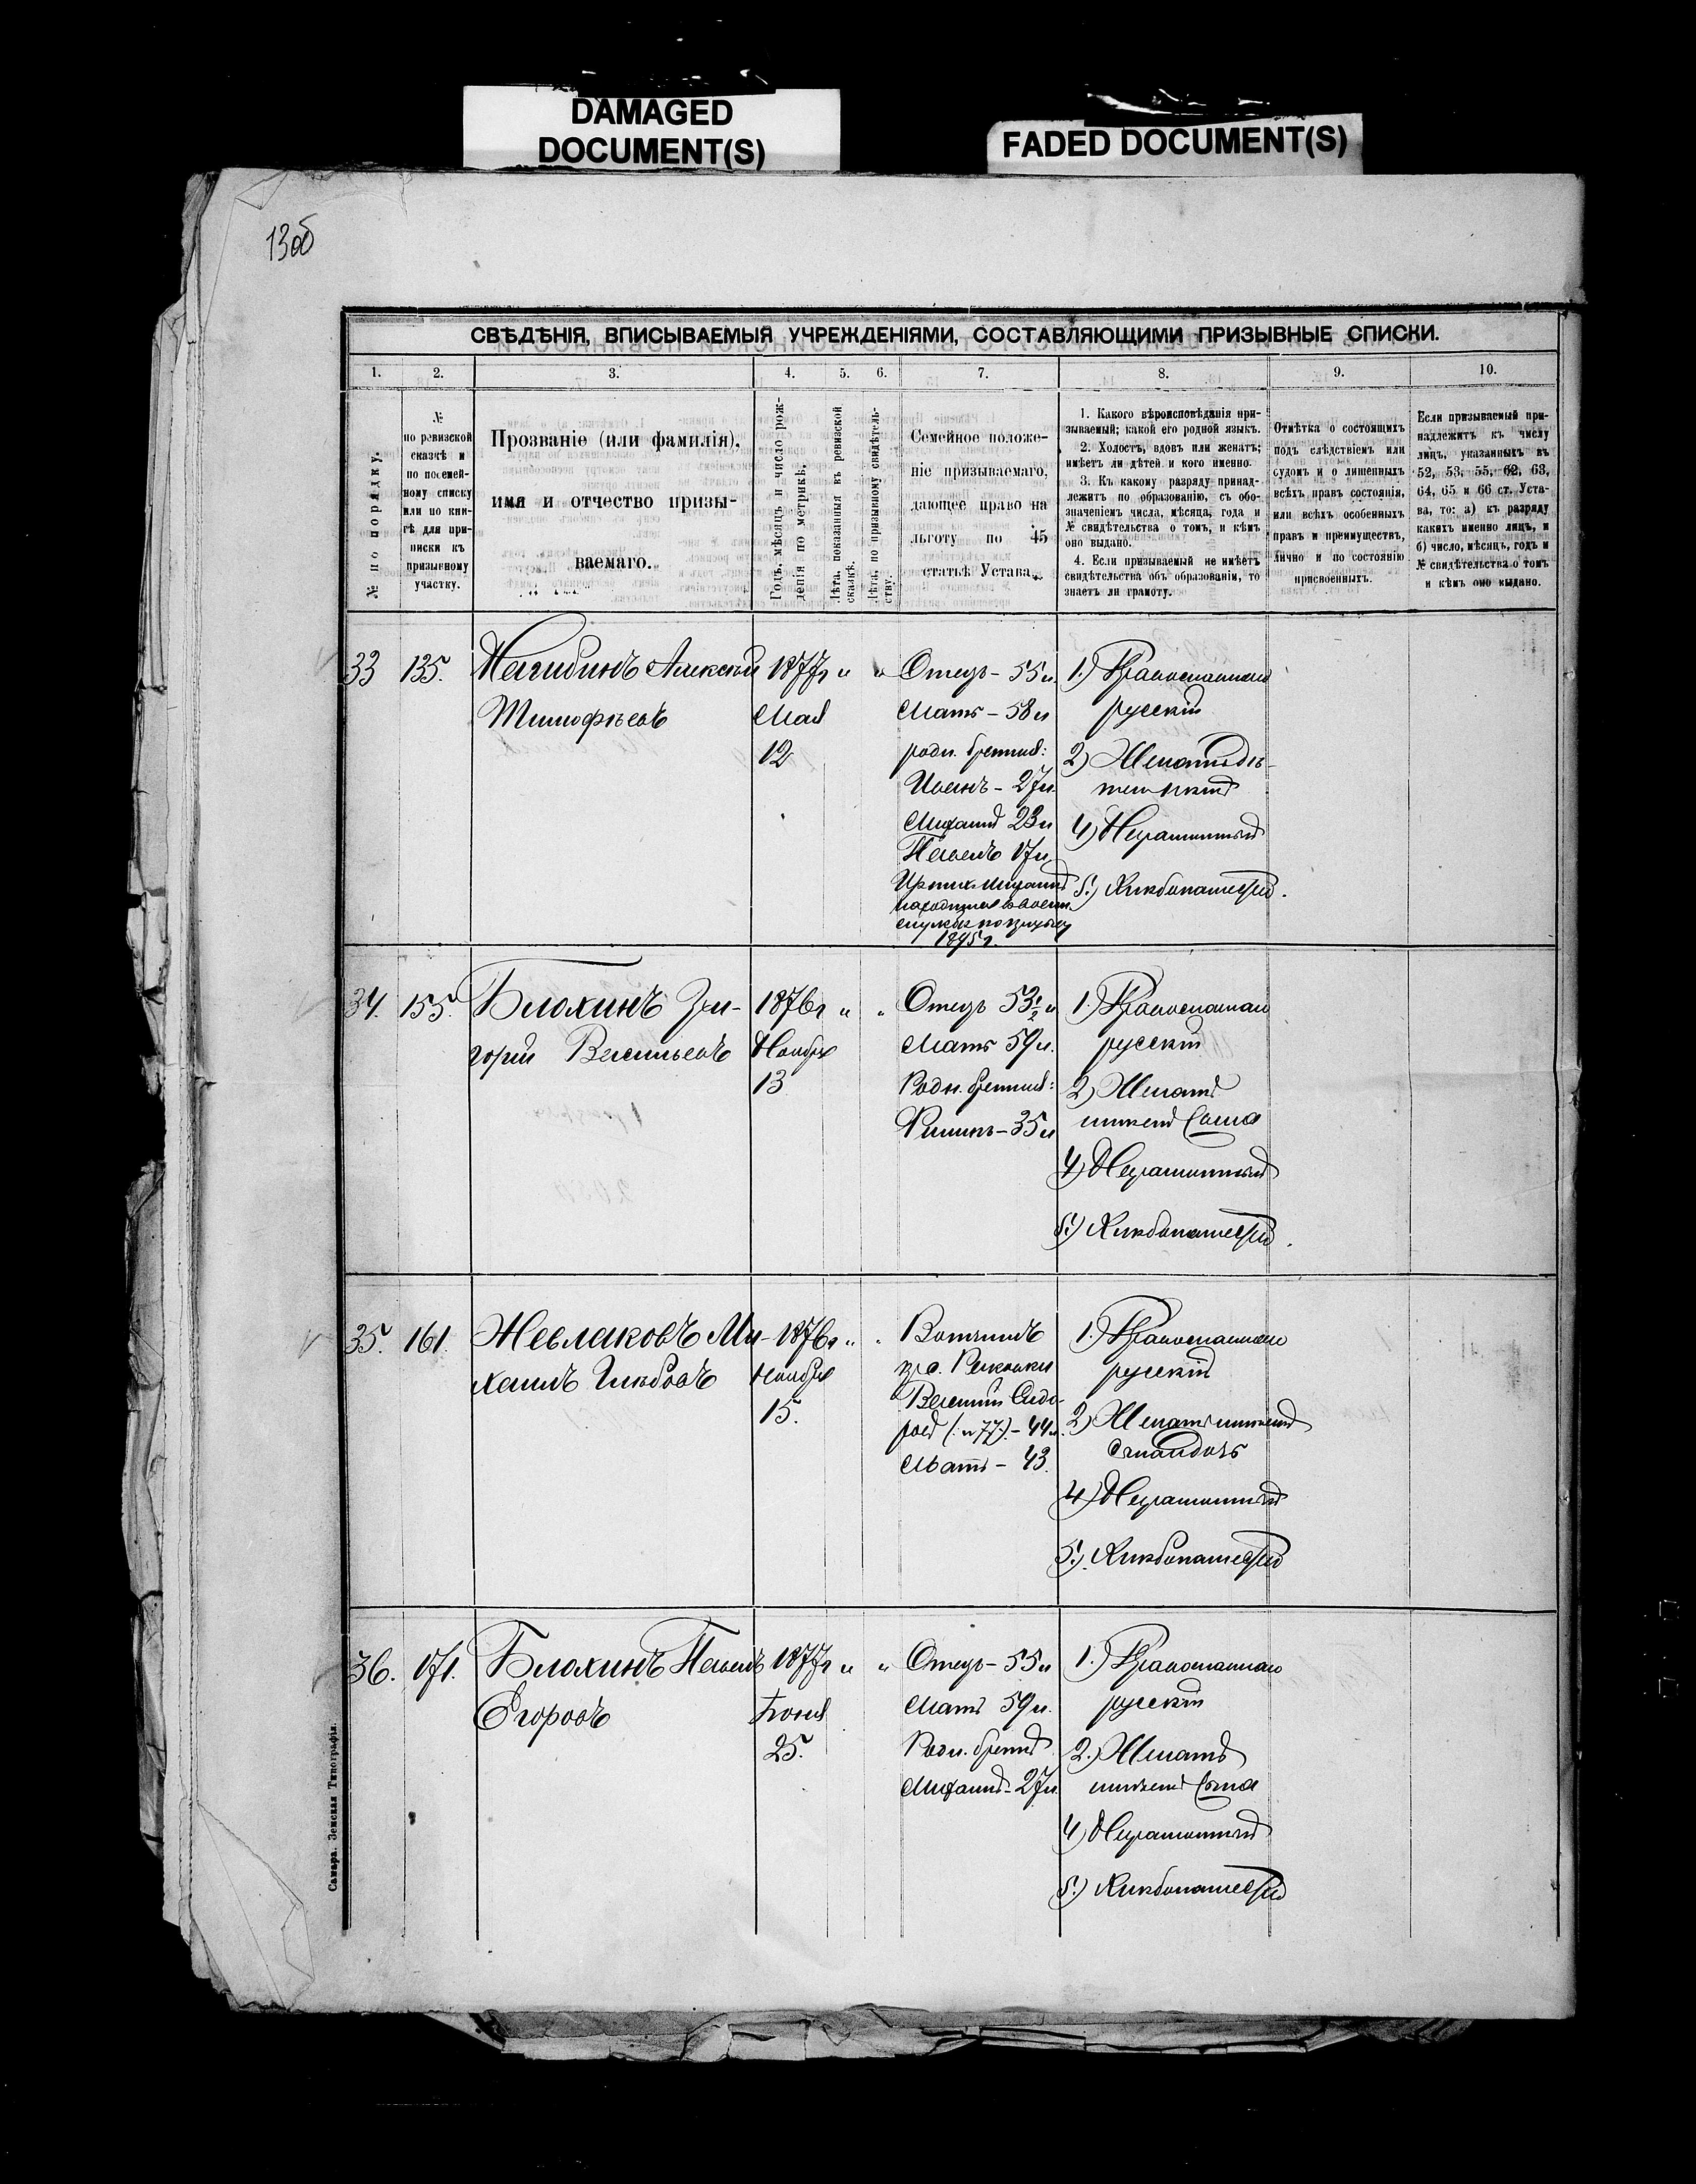 DAMAGED
DOCUMENT(S)
FADED DOCUMENT(S)
13об
СВѢДѢНІЯ, ВПИСЫВАЕМЫЯ УЧРЕЖДЕНІЯМИ, СОСТАВЛЯЮЩИМИ ПРИЗЫВНЫЕ СПИСКИ.
1. 2. 3. 4. 5. 6. 7. 8. 9. 10.
№ по порядку.
№
по ревизской
сказкѣ и
по посемей-
ному списку
или по кни-
гѣ для при-
писки къ
призывному
участку.
Прозваніе (или фамилія),
имя и отчество призы-
ваемаго.
Годъ, мѣсяцъ и число рож-
денія по метрикѣ.
Лѣта, показанныя въ ревизской
сказкѣ.
Лѣта, по призывному свидѣтель-
ству.
Семейное положе-
ніе призываемаго,
дающее право на
льготу по 45
статьѣ Устава.
1. Какого вѣроисповѣданія при-
зываемый; какой его родной языкъ.
2. Холостъ, вдовъ или женатъ;
имѣетъ ли дѣтей и кого именно.
3. Къ какому разряду принад-
лежитъ по образованію, съ обо-
значеніемъ числа, мѣсяца, года и
№ свидѣтельства о томъ, и кѣмъ
оно выдано.
4. Если призываемый не имѣетъ
свидѣтельства объ образованіи, то
знаетъ ли грамоту.
Отмѣтка о состоящихъ
подъ слѣдствіемъ или
судомъ и о лишенныхъ
всѣхъ правъ состоянія,
или всѣхъ особенныхъ
правъ и преимуществъ,
лично и по состоянію
присвоенныхъ.
Если призываемый при-
надлежитъ къ числу
лицъ, указанныхъ въ
52, 53, 55, 62, 63,
64, 65 и 66 ст. Уста-
ва, то: а) къ разряду
какихъ именно лицъ, и
б) число, мѣсяцъ, годъ и
№ свидѣтельства о томъ
и кѣмъ оно выдано.
33 135. Нагибинъ Алексѣй
Тимофѣевъ
1877г " "
Мая
12
Отецъ - 55 л.
Мать - 58 л
родн. братья:
Иванъ - 27 л.
Михаилъ 23 л
Павелъ 17 л
Изъ нихъ Михаилъ
находится въ воен.
службѣ по призыву
1895 г.
1.) Православнаго
русскій
2) Женатъ дѣ-
тей нѣтъ
4) Неграмотный
5.) Хлѣбопашецъ.
34. 155. Блохинъ Гри-
горій Васильевъ
1876г " "
Ноября
13
Отецъ 53 1/2 л
Мать 59 л.
Родн. братья:
35 л
1.) Православнаго
русскій
2) Женатъ
имѣетъ сына
4) Неграмотный
5.) Хлѣбопашецъ.
35. 161. Жевлаковъ Ми-
хаилъ Глѣбовъ
1876г " "
Ноября
15.
Вотчимъ
Василій Сидо-
ровъ (: № 77:) - 44 л.
Мать - 43.
1.) Православнаго
русскій
2) Женатъ имѣетъ
4) Неграмотный
5.) Хлѣбопашецъ
36. 171. Блохинъ Павелъ
Егоровъ
1877г " "
Іюня
25.
Отецъ - 55 л
Мать 59 л.
Родн. братъ
Михаилъ - 27 л.
1.) Православнаго
русскій
2.) Женатъ
имѣетъ сына
4) Неграмотный
5.) Хлѣбопашецъ
Самара. Земская Типографія.